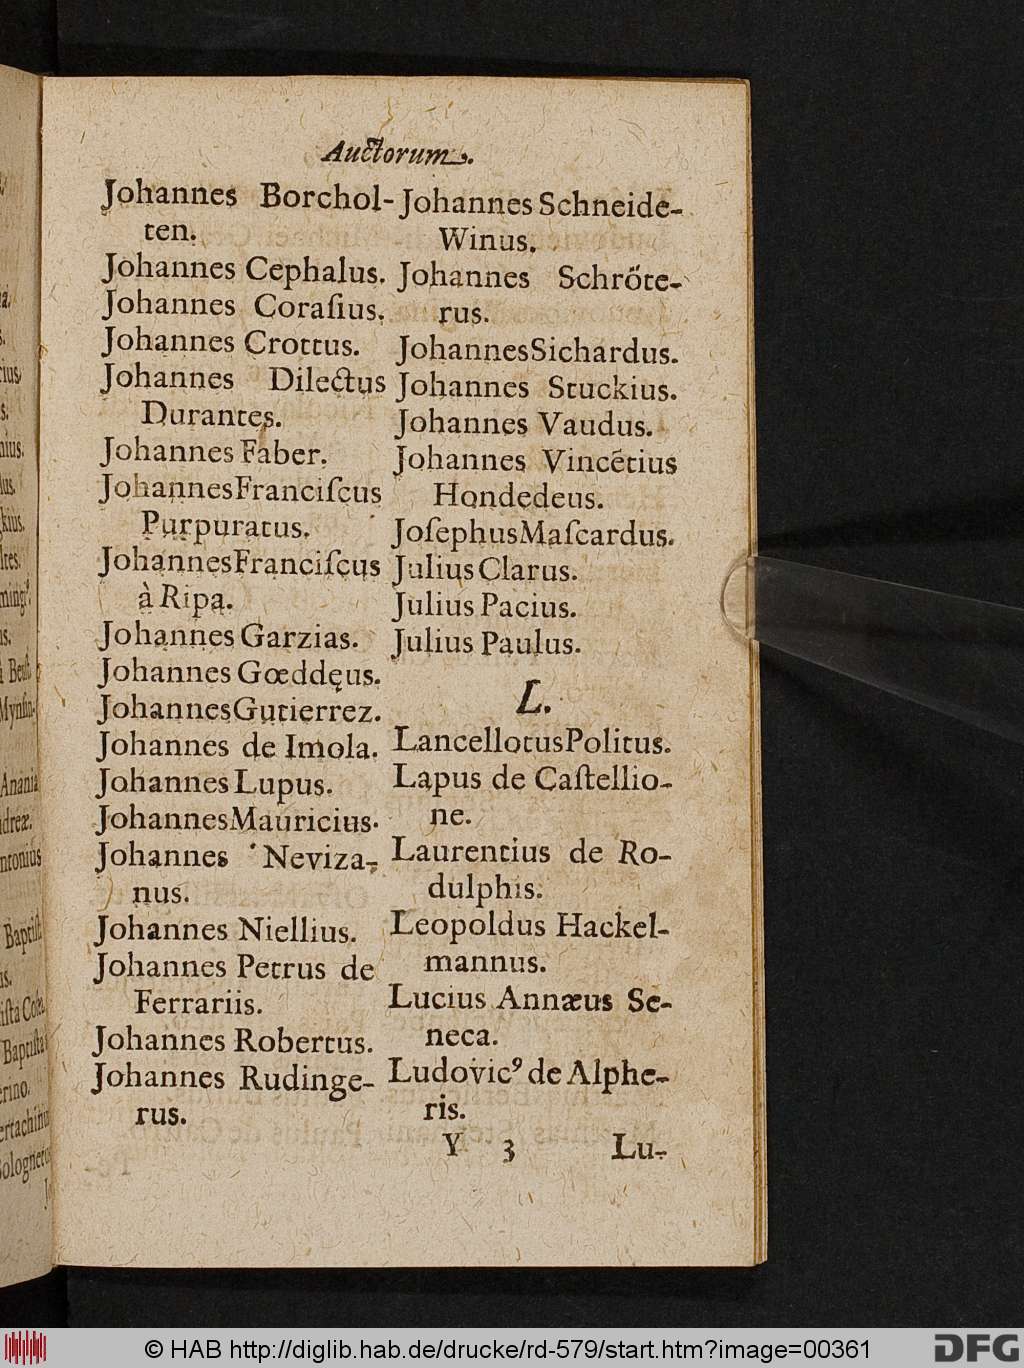 Auctorum.
Johannes Borchol-
ten.
Johannes Cephalus.
Johannes Coraſius.
Johannes Crottus.
Johannes Dilectus
Durantes.
Johannes Faber.
Johannes Franciſcus
Purpuratus.
Johannes Franciſcus
à Ripa.
Johannes Garzias.
Johannes Gœddęus.
Johannes Gutierrez.
Johannes de Imola.
Johannes Lupus.
Johannes Mauricius.
Johannes Neviza-
nus.
Johannes Niellius.
Johannes Petrus de
Ferrariis.
Johannes Robertus.
Johannes Rudinge-
rus.
Johannes Schneide-
Winus.
Johannes Schröte-
rus.
Johannes Sichardus.
Johannes Stuckius.
Johannes Vaudus.
Johannes Vincētius
Hondedeus.
Joſephus Maſcardus.
Julius Clarus.
Julius Pacius.
Julius Paulus.
L.
Lancellotus Politus.
Lapus de Caſtellio-
ne.
Laurentius de Ro-
dulphis.
Leopoldus Hackel-
mannus.
Lucius Annæus Se-
neca.
Ludovicꝰ de Alphe-
ris.
Y 3 Lu-
© HAB http://diglib.hab.de/drucke/rd-579/start.htm?image=00361
DFG